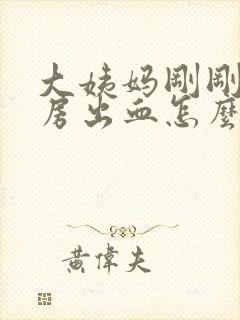 大姨妈刚刚
房出血怎麼
黄偉夫